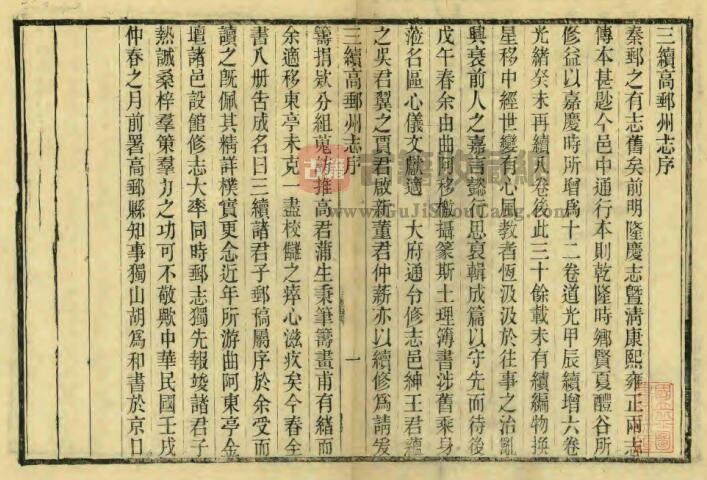 三續高郵州志序
秦郵之有志舊矣前明隆慶志曁清康熙雍正兩志
傳本甚尠今邑中通行本則乾隆時鄉賢夏醴谷所
修益以嘉慶時所增爲十二卷道光甲辰續增六卷
光緒癸未再續八卷後此三十餘載未有續編物換
星移中經世變有心風教者恆汲汲於往事之治亂
興衰前人之嘉言懿行思裒輯成篇以守先而待後
戊午春余由曲阿移檄攝篆斯土理簿書涉舊乘身
蒞名區心儀文獻適 大府通令修志邑紳王君蘊
之吳君翼之賈君啟新董君仲薪亦以續修爲請爰
三續高郵州志序
一
籌捐欵分組蒐訪推高君蒲生秉筆籌畫甫有緒而
余適移東亭未克一盡校讎之瘁心滋疚矣今春全
書八册告成名曰三續諸君子郵稿屬序於余受而
讀之旣佩其精詳樸實更念近年所游曲阿東亭金
壇諸邑設館修志大率同時郵志獨先報竣諸君子
熱誠桑梓羣策羣力之功可不敬歟中華民國壬戌
仲春之月前署高郵縣知事獨山胡爲和書於京口
古籍收藏網
www.GuJiShouCang.com